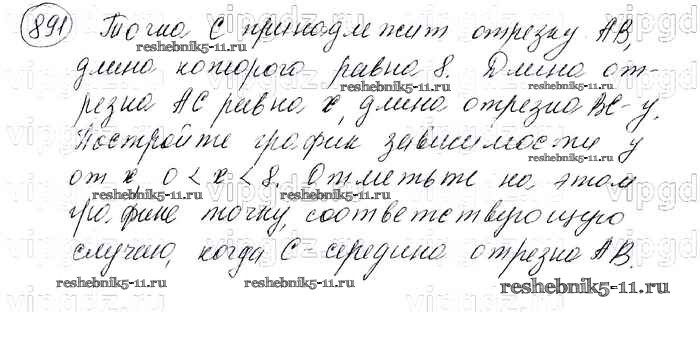 891 Точка C принадлежит отрезку AB,
reshebnik5-11.ru
длина которого равна 8. Длина от-
reshebnik5-11.ru
резка AC равна x, длина отрезка BC - y.
reshebnik5-11.ru
Постройте график зависимости y
reshebnik5-11.ru
от x 0 < x < 8. Отметьте на этом
reshebnik5-11.ru reshebnik5-11.ru
графике точку, соответствующую
reshebnik5-11.ru
случаю, когда C середина отрезка AB.
reshebnik5-11.ru reshebnik5-11.ru
vipgdz.ru vipgdz.ru vipgdz.ru